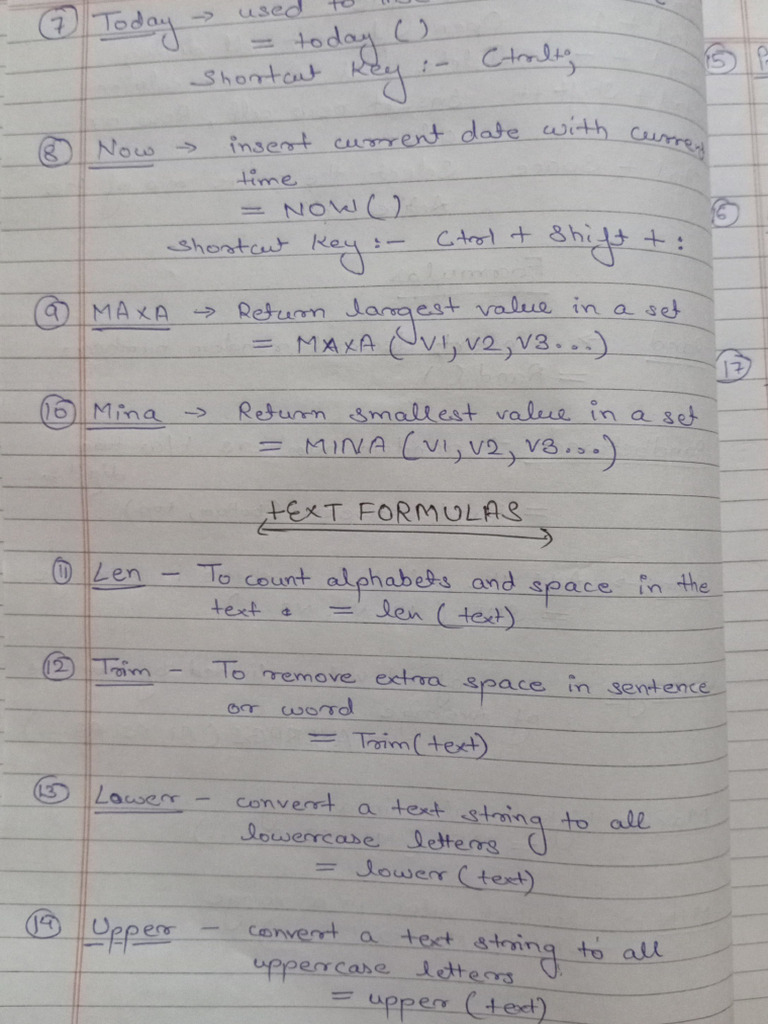 ⑦ Today → used to
= today ()
Shortcut Key :- Ctrl+;
⑧ Now → insert current date with current
time
= NOW()
Shortcut Key :- Ctrl + Shift + :
⑨ MAXA → Return largest value in a set
= MAXA (V1, V2, V3...)
⑩ Mina → Return smallest value in a set
= MINA (V1, V2, V3...)
TEXT FORMULAS
⑪ Len - To count alphabets and space in the
text . = len (text)
⑫ Trim - To remove extra space in sentence
or word
= Trim(text)
⑬ Lower - convert a text string to all
lowercase letters
= lower (text)
⑭ Upper - convert a text string to all
uppercase letters
= upper (text)
⑮
⑯
⑰